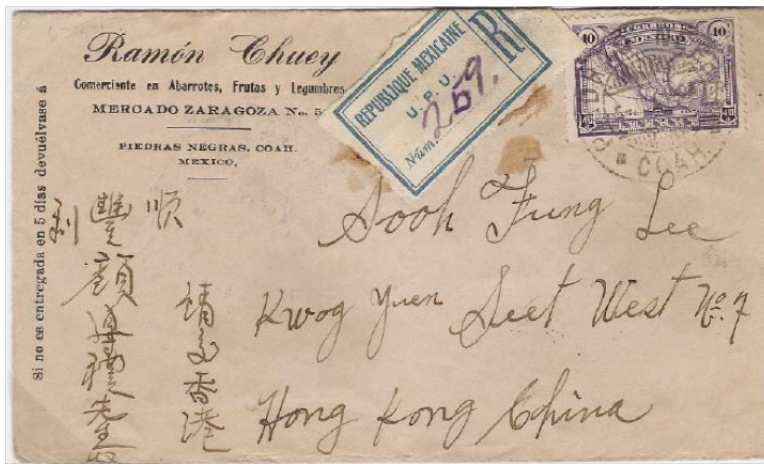 Ramón Chuey
Comerciente en Abarrotes, Frutas y Legumbres
MERCADO ZARAGOZA No. 5
PIEDRAS NEGRAS, COAH.
MEXICO,
Si no es entregada en 5 días devuélvase á
REPUBLIQUE MEXICAINE
U. P. U.
Núm. 259.
R
40 40
COAH.
Sooh Fung Lee
Kwog Yuen Seet West No. 7
Hong Kong China
香港
順豐利
顏 禮先生